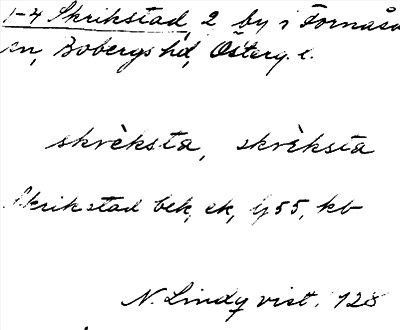 1-4 Skrikstad, 2 by i Fornåsa
sn, Bobergs hd, Österg. l.
skrèksta, skrèksta
Skrikstad bek, ek, G55, kb
N. Lindqvist. 128